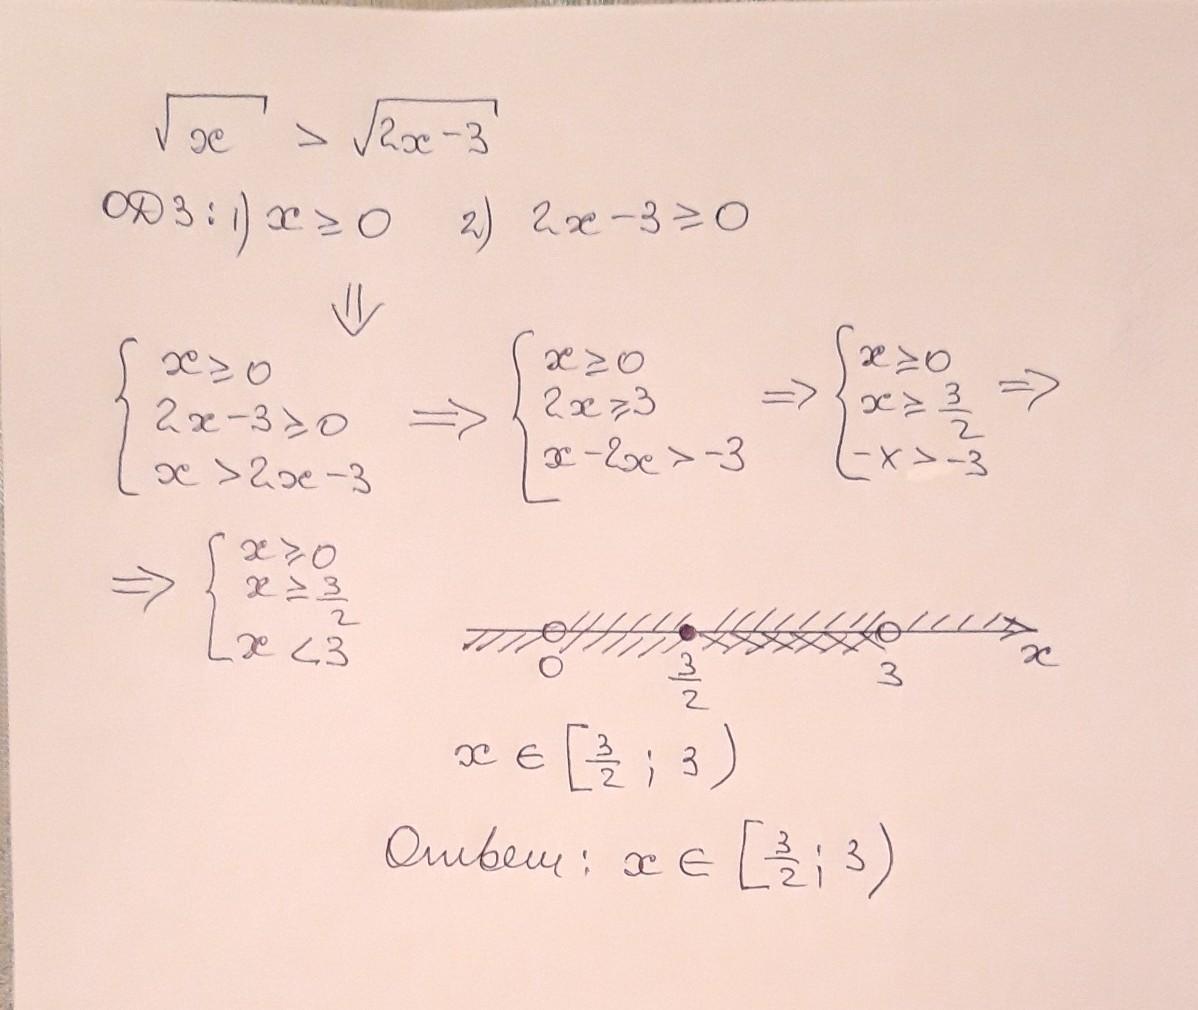 √x > √2x-3
ОДЗ: 1) x ≥ 0 2) 2x-3 ≥ 0
⇓
{ x ≥ 0 ⇒ { x ≥ 0 ⇒ { x ≥ 0 ⇒
2x-3 ≥ 0 2x ≥ 3 x ≥ 3/2
x > 2x-3 x-2x > -3 -x > -3
⇒ { x ≥ 0
x ≥ 3/2
x < 3
0 3/2 3 x
x ∈ [3/2 ; 3)
Ответ: x ∈ [3/2 ; 3)